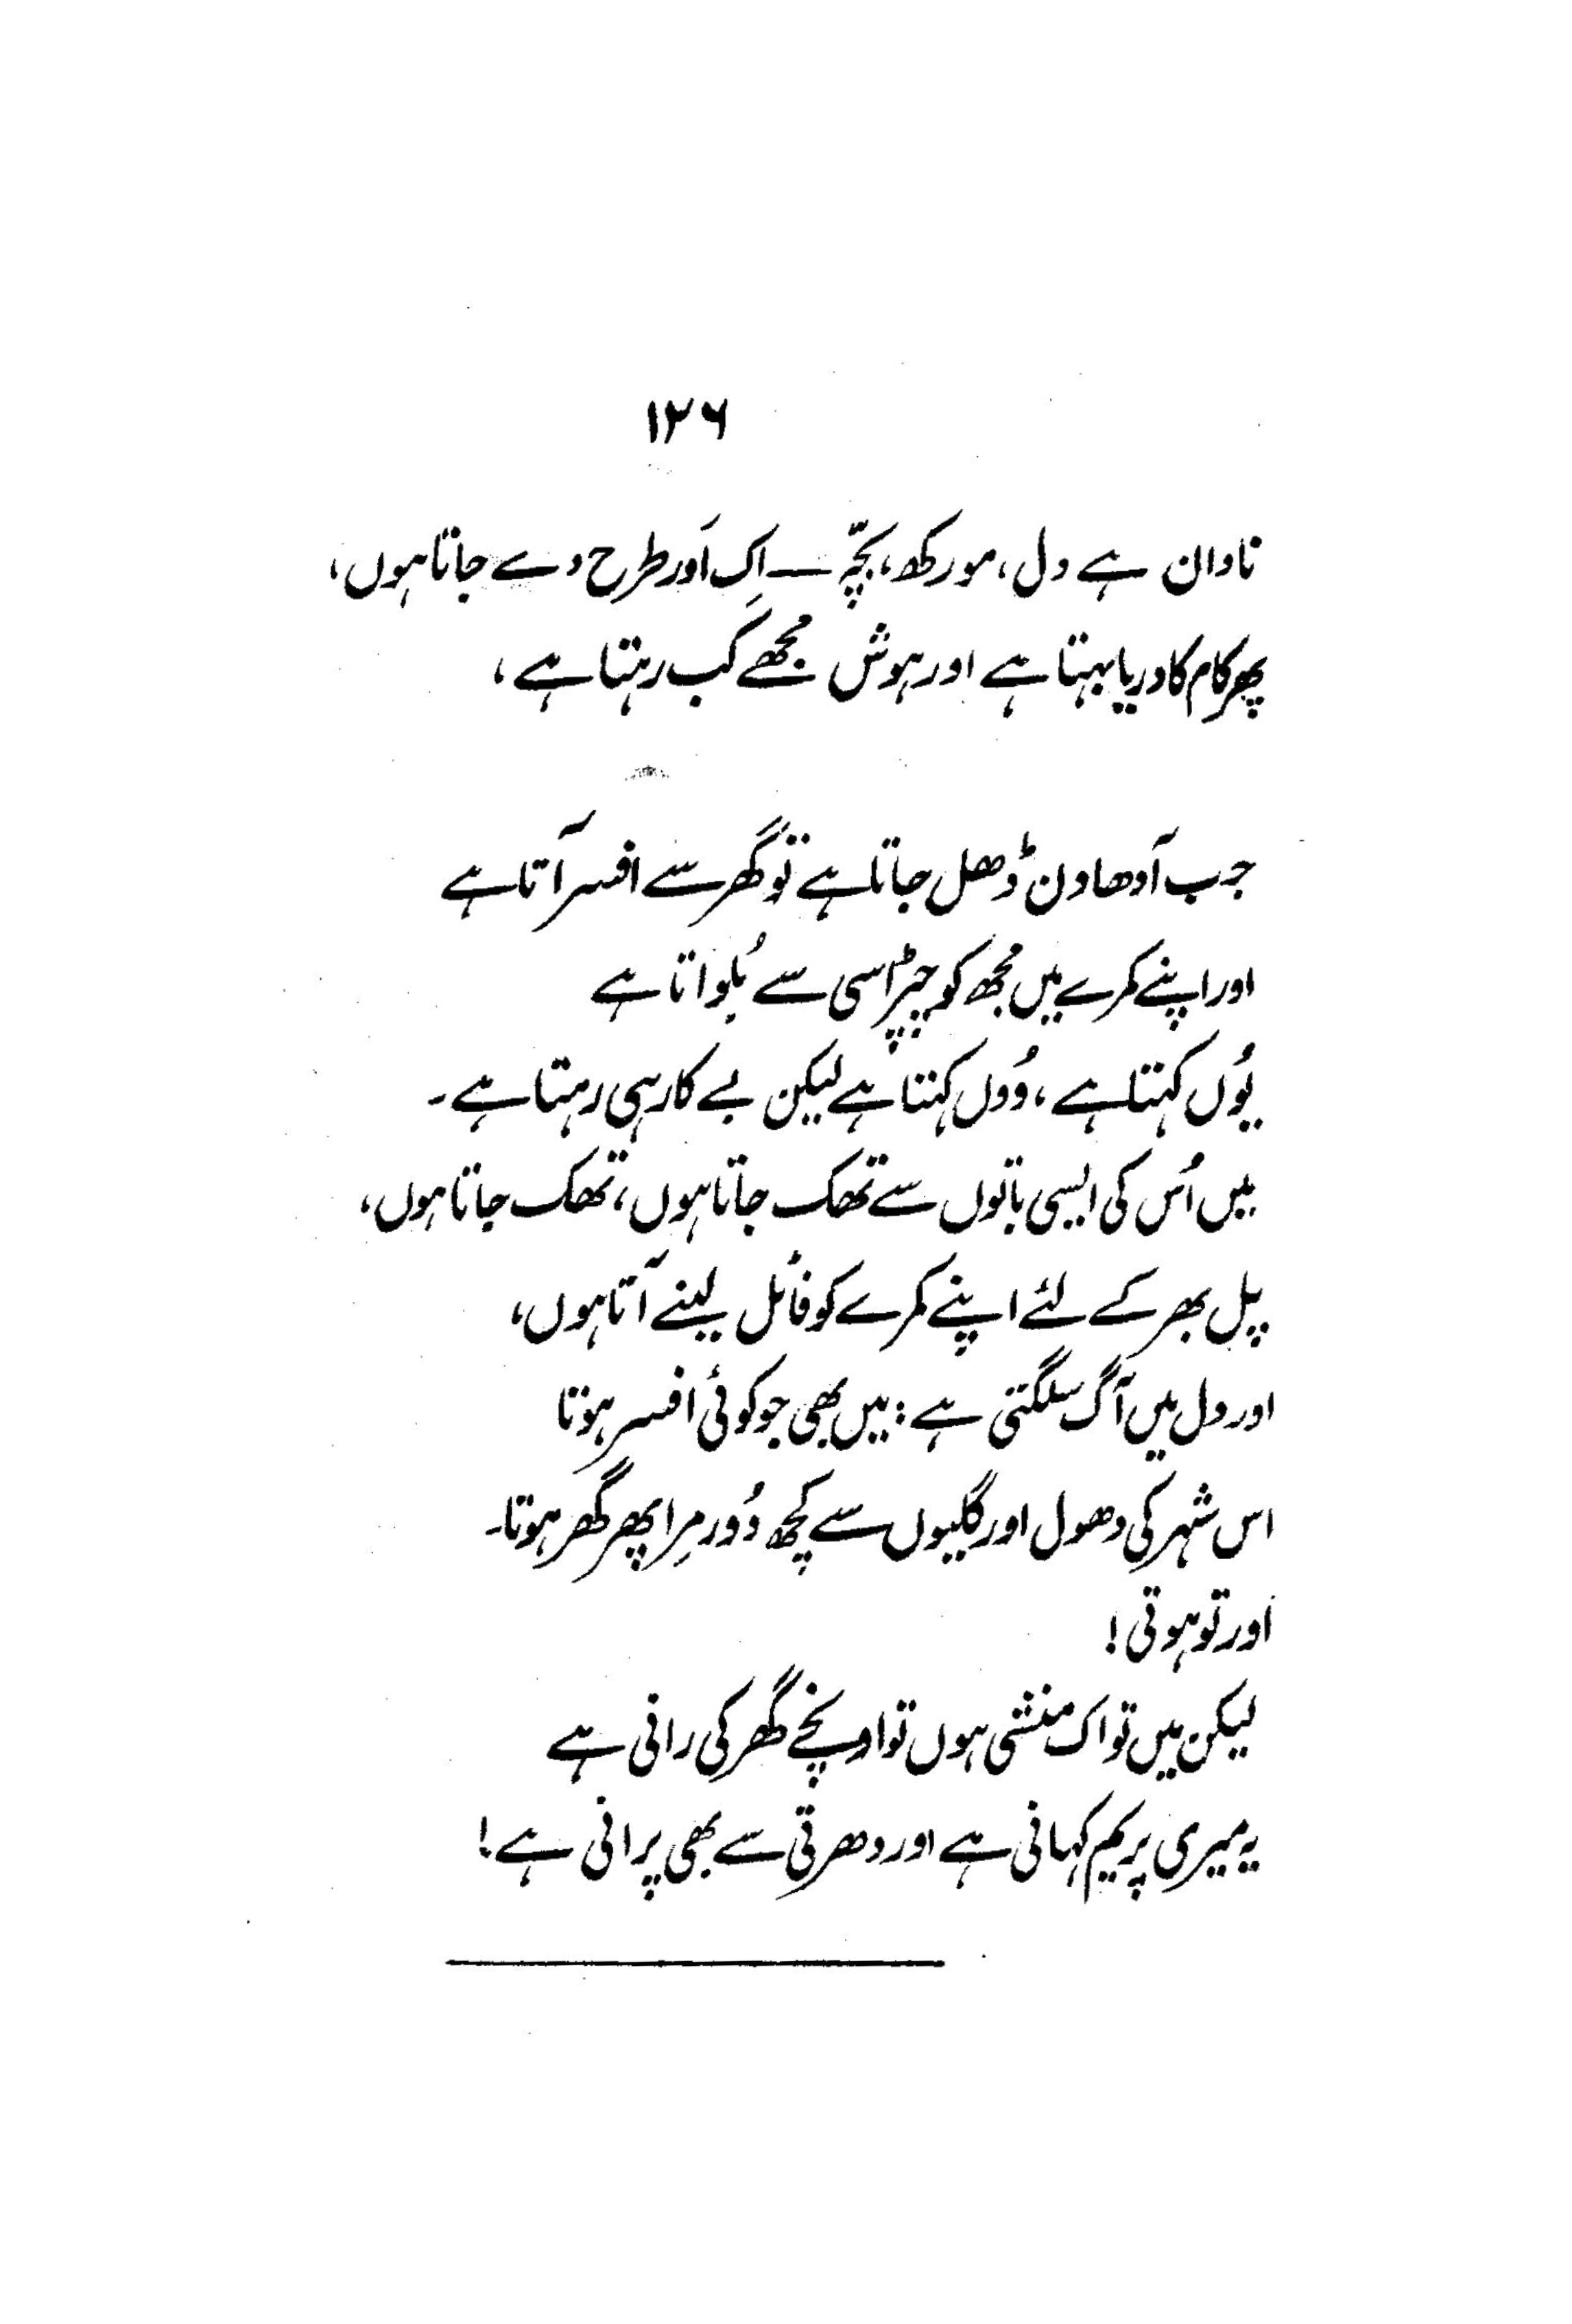 ۱۲۶
نادان ہے دل، مورکھ، بچّہ ۔۔ اِک اَور طرح دے جاتا ہوں،
پھر کام کا دریا بہتا ہے اور ہوش مجھے کب رہتا ہے،
جب آدھا دن ڈھل جاتا ہے تو گھر سے افسر آتا ہے
اور اپنے کمرے میں مجھ کو چپڑاسی سے بُلواتا ہے
یُوں کہتا ہے، وُوں کہتا ہے لیکن بے کار ہی رہتا ہے۔
میں اُس کی ایسی باتوں سے تھک جاتا ہوں، تھک جاتا ہوں،
پل بھر کے لئے اپنے کمرے کو فائل لینے آتا ہوں،
اور دل میں آگ سلگتی ہے: میں بھی جو کوئی افسر ہوتا
اس شہر کی دھول اور گلیوں سے کچھ دُور مِرا پھر گھر ہوتا۔
اَور تو ہوتی!
لیکن میں تو اک منشی ہوں تو اونچے گھر کی رانی ہے
یہ میری پریم کہانی ہے اور دھرتی سے بھی پرانی ہے!